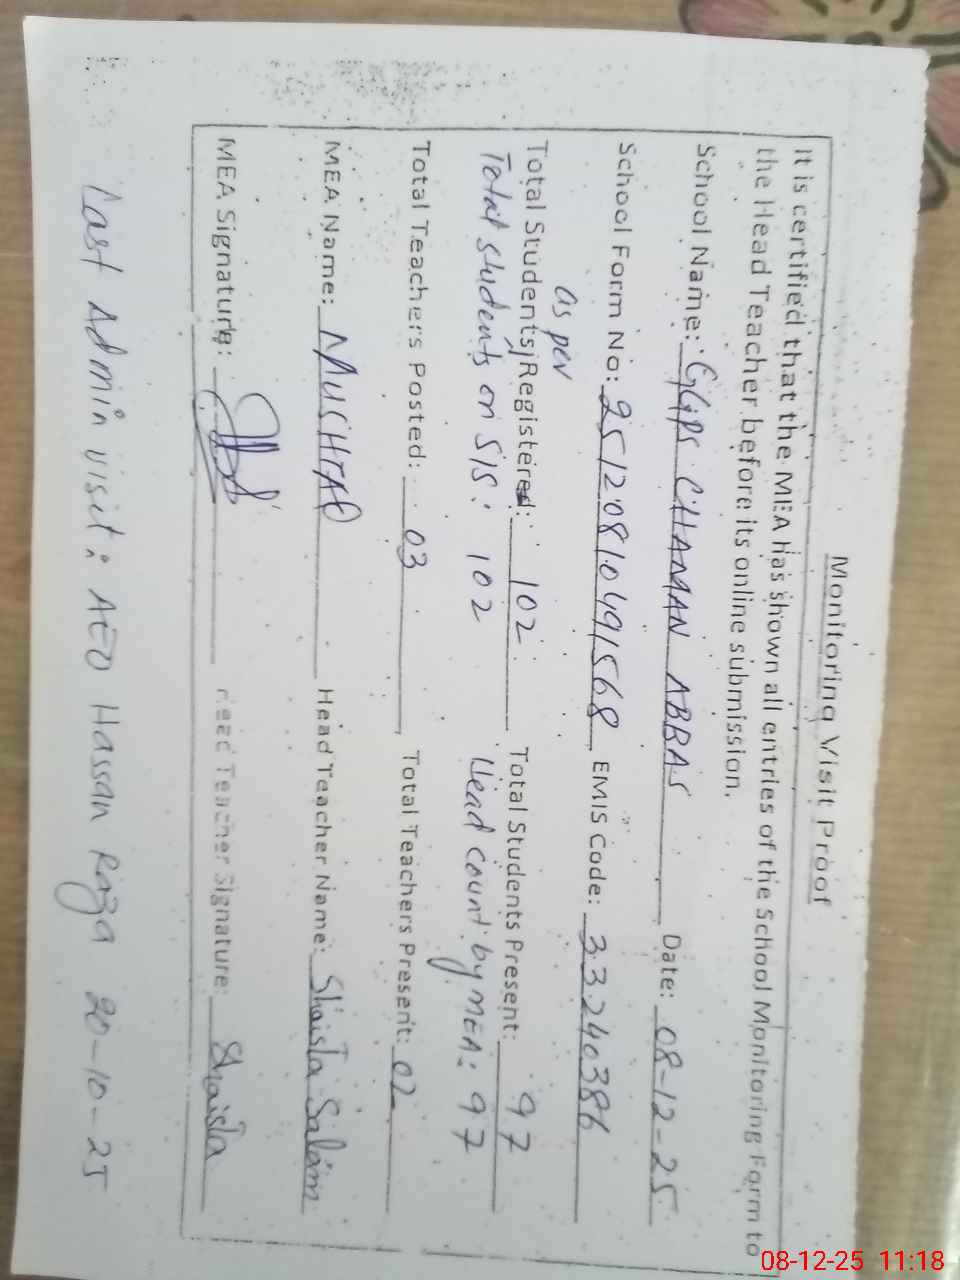 Monitoring Visit Proof
It is certified that the MEA has shown all entries of the School Monitoring Form to
the Head Teacher before its online submission.
School Name: GGPS CHAMAN ABBAS Date: 08-12-25
School Form No: 2512081049 1568 EMIS Code: 33240386
as per
Total Students Registered: 102 Total Students Present: 97
Total students on SIS: 102 Head count by MEA: 97
Total Teachers Posted: 03 Total Teachers Present: 02
MEA Name: MUSHTAQ Head Teacher Name: Shaista Salam
MEA Signature: Head Teacher Signature: Shaista
Last Admin visit: AEO Hassan Raza 20-10-25
08-12-25 11:18